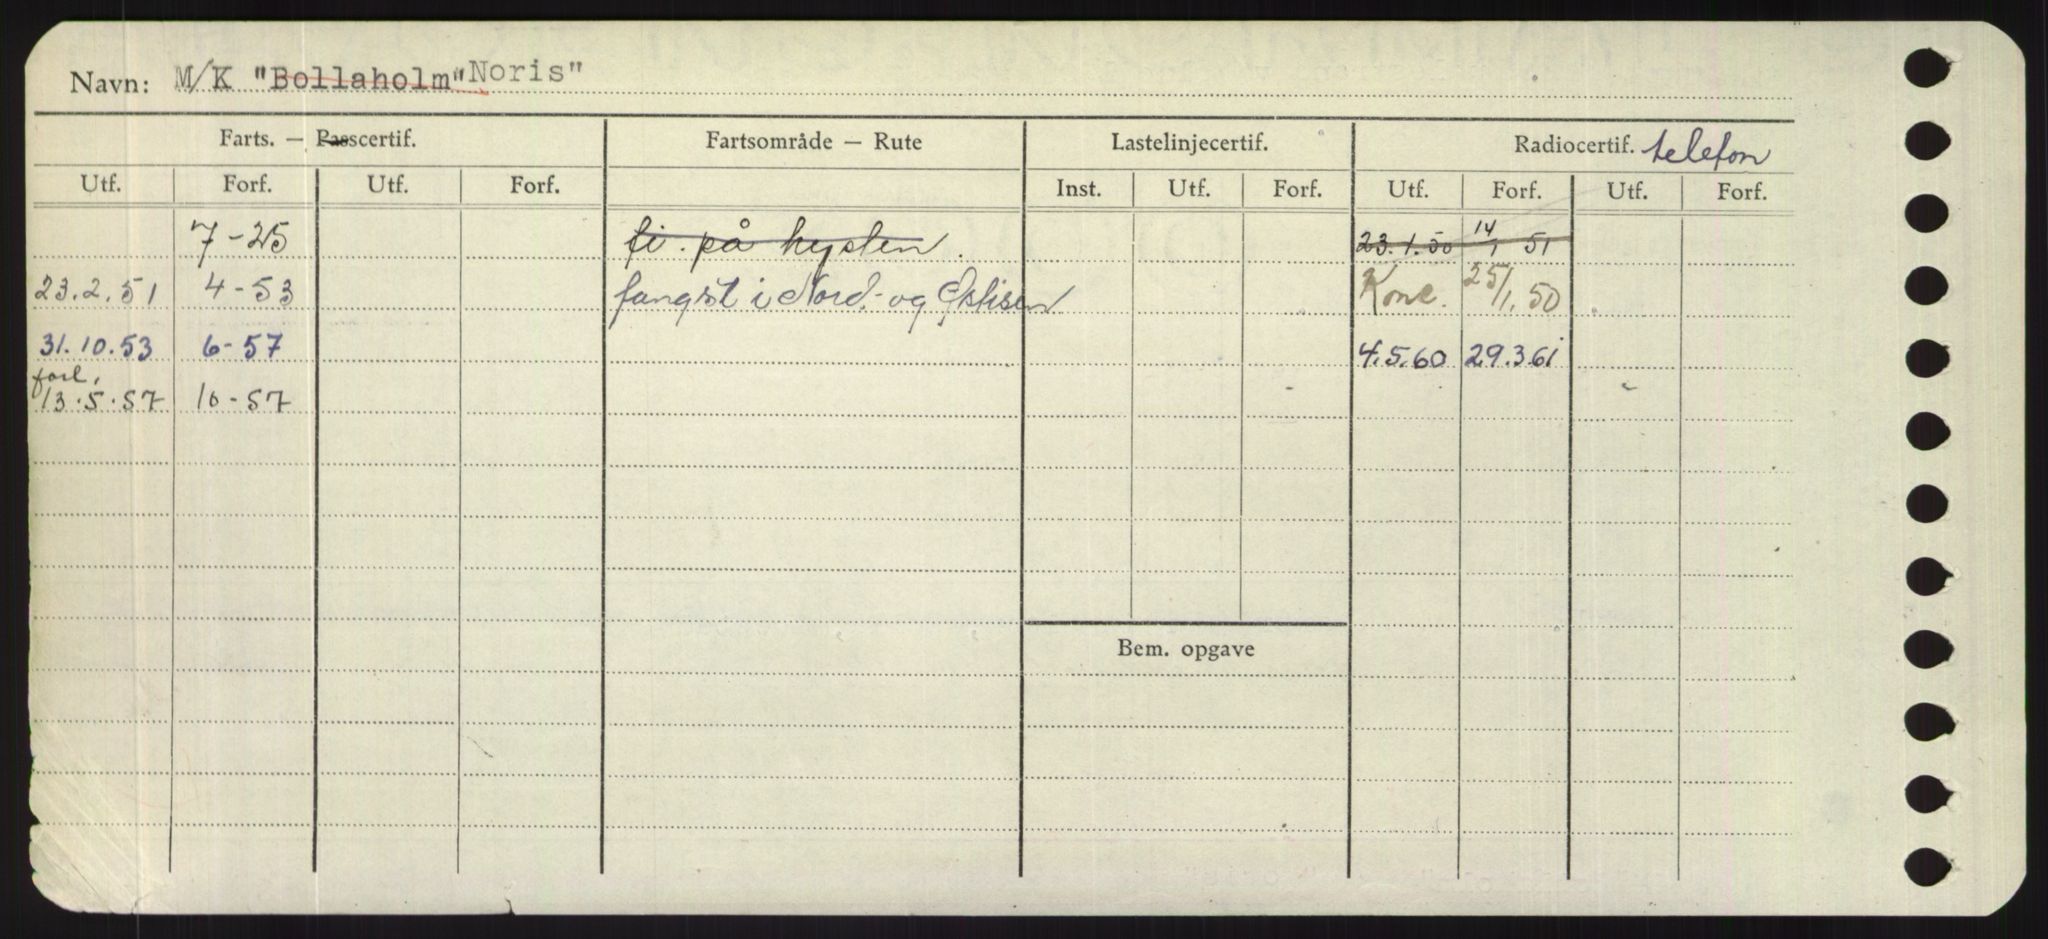 Navn: M/K "Bollaholm" Noris"
Farts. — Passcertif. Fartsområde — Rute Lastelinjecertif. Radiocertif. telefon
Utf. Forf. Utf. Forf. Inst. Utf. Forf. Utf. Forf. Utf. Forf.
7-25 fi. på kysten. 23.1.50 14/1 51
23.2.51 4-53 fangst i Nord- og Østisen Konc. 25/1.50
31.10.53 6-57 4.5.60 29.3.61
forl.
13.5.57 10-57
Bem. opgave